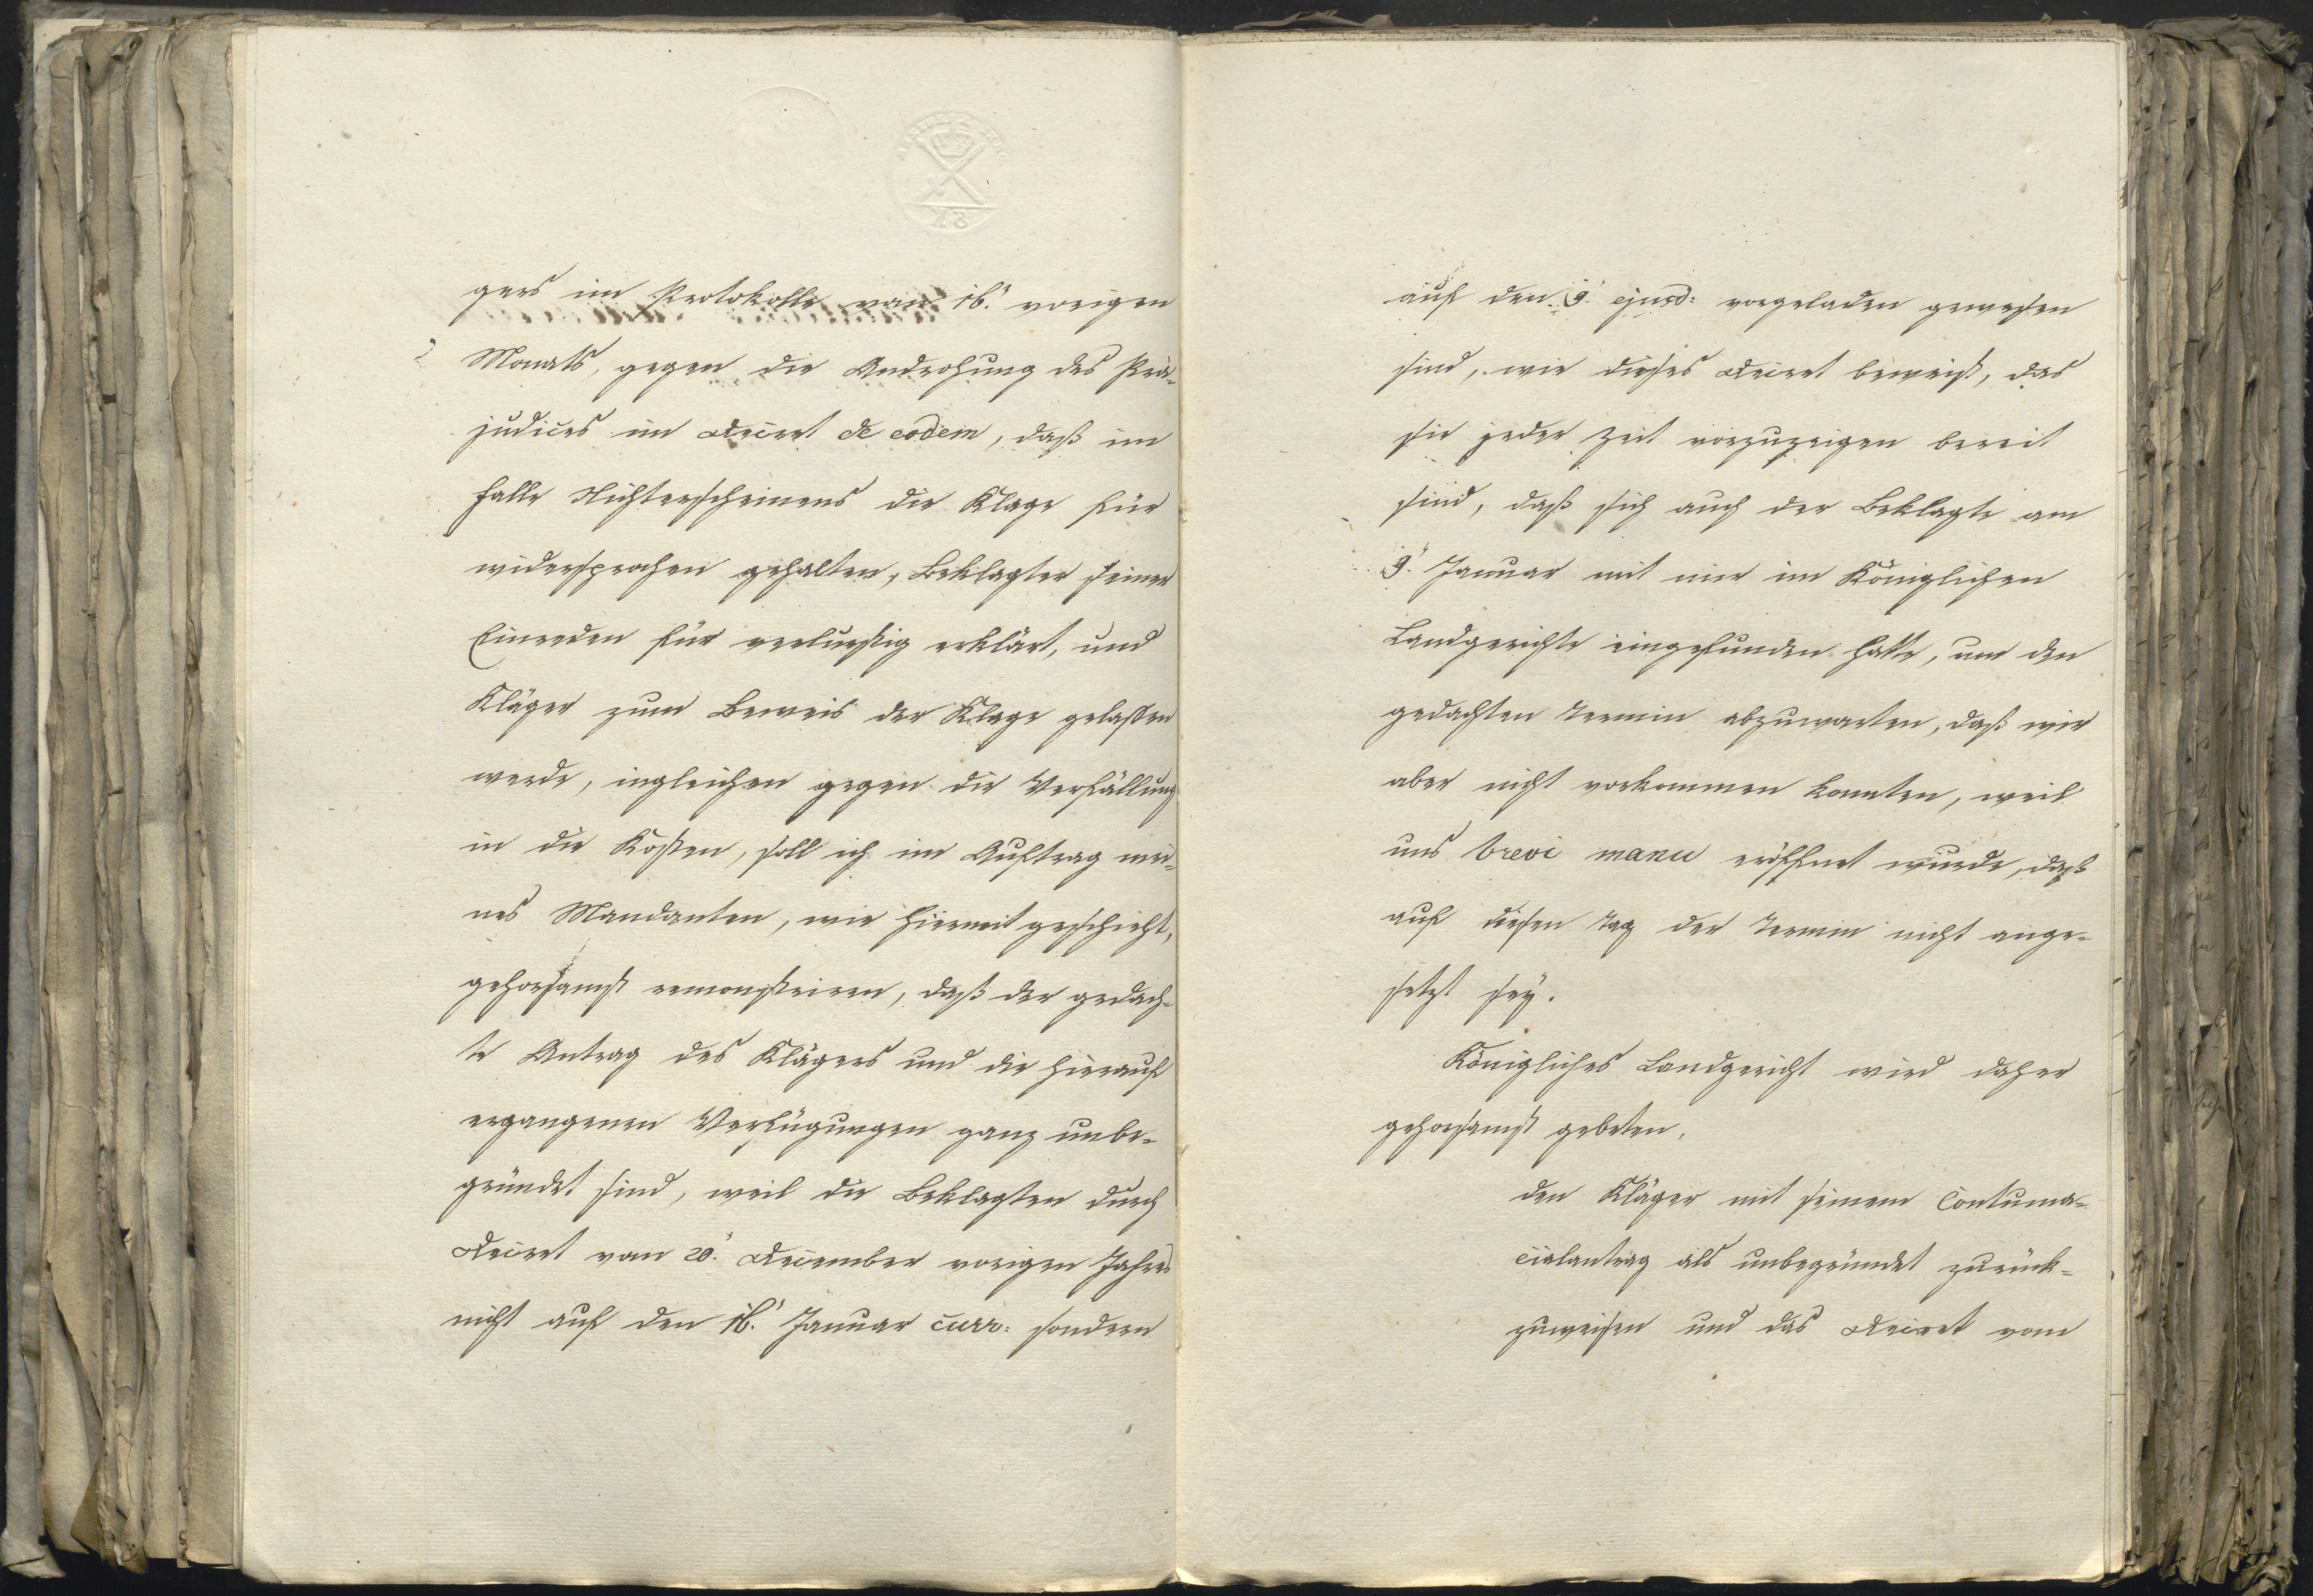 gers im Protokolle vom 16.' vorigen
Monats, gegen die Androhung des Prä-
judices im Decret de eodem, daß im
Falle Nichterscheinens die Klage für
widersprochen gehalten, Beklagter seiner
Einreden für verlustig erklärt, und
Kläger zum Beweis der Klage gelassen
werde, ingleichen gegen die Verfällung
in die Kosten, soll ich im Auftrag mei-
nes Mandanten, wie hiermit geschieht,
gehorsamst remonstriren, daß der gedach-
te Antrag des Klägers und die hierauf
ergangenen Verfügungen ganz unbe-
gründet sind, weil die Beklagten durch
Decret vom 20.' December vorigen Jahres
nicht auf den 16.' Januar curr: sondern
auf den 9.' ejusd: vorgeladen gewesen
sind, wie dieses Decret beweist, das
sie jeder Zeit vorzuzeigen bereit
sind, daß sich auch der Beklagte am
9.' Januar mit mir im Königlichen
Landgerichte eingefunden hatte, um den
gedachten Termin abzuwarten, daß wir
aber nicht vorkommen konnten, weil
uns brevi manu eröffnet wurde, daß
auf diesen Tag der Termin nicht ange-
setzt sey.
Königliches Landgericht wird daher
gehorsamst gebeten,
den Kläger mit seinem Contuma-
cialantrag als unbegründet zurück-
zuweisen und das Decret vom